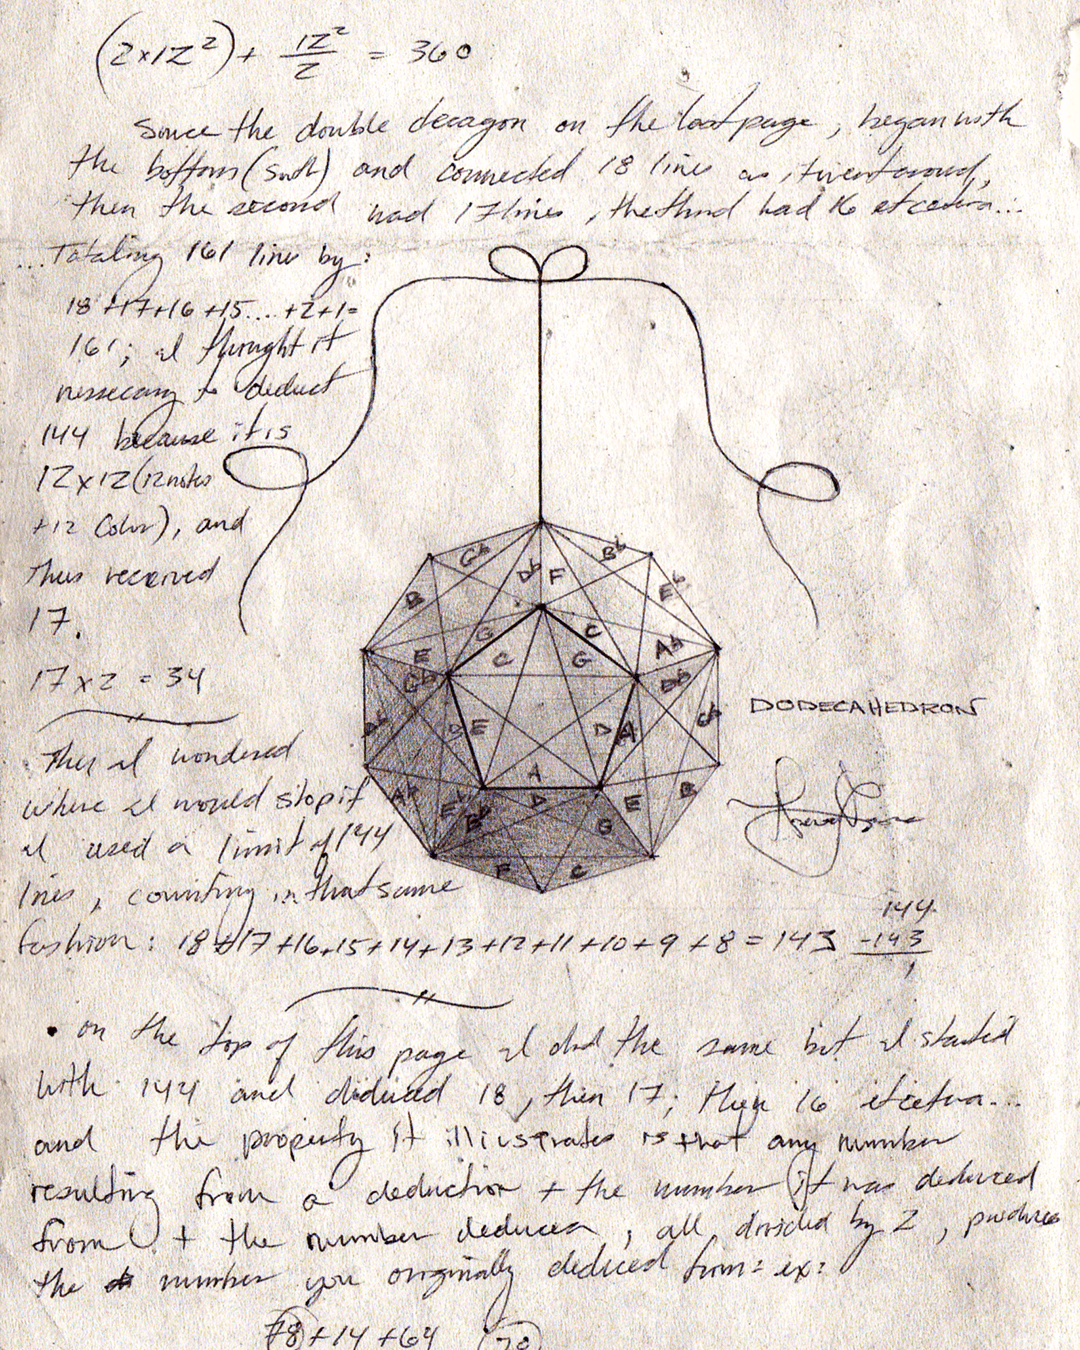 (2x12²) + 12²/2 = 360
Since the double decagon on the last page, began with
the bottom (South) and connected 18 lines as i went around,
then the second had 17 lines, the third had 16 etcetera...
...Totaling 161 lines by:
18+17+16+15....+2+1=
161; I thought it
nessecary to deduct
144 because it is
12x12(12 notes
+12 Color), and
thus received
17.
17x2 = 34
Then I wondered
where I would stop if
I used a limit of 144
lines, counting in that same
fashion: 18+17+16+15+14+13+12+11+10+9+8=143
144
-143
1
Gb
Bb
Db
F
Eb
B
G
C
Ab
E
C
G
Gb
Db
Db
D
E
D
A
Gb
A
Ab
Eb
Bb
D
E
B
G
F
C
DODECAHEDRON
• on the top of this page I did the same but I started
with 144 and diduced 18, then 17, then 16 etcetra...
and the property it illustrates is that any number
resulting from a deduction + the number it was deduced
from + the number deduced, all divided by 2, produces
the number you originally deduced from: ex:
78+14+64